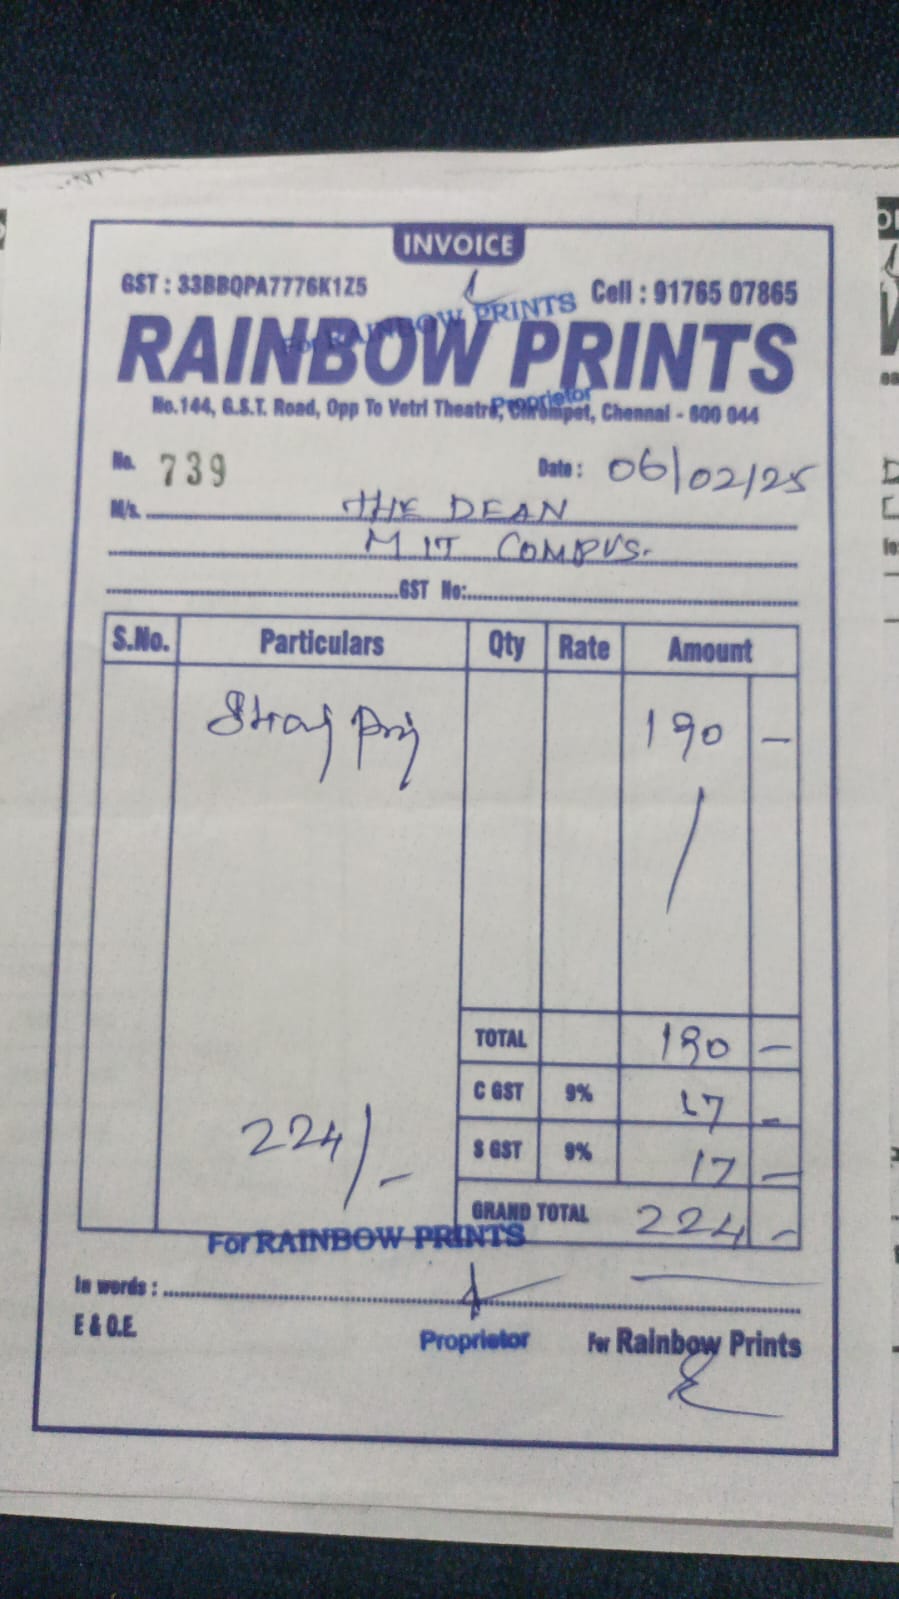 INVOICE
GST : 33BBQPA7776K1Z5
Cell : 91765 07865
For RAINBOW PRINTS
RAINBOW PRINTS
Proprietor
No.144, G.S.T. Road, Opp To Vetri Theatre, Chrompet, Chennai - 600 044
No. 739
Date : 06/02/25
M/s. THE DEAN
MIT COMPUS.
GST No:
S.No. Particulars Qty Rate Amount
190 —
TOTAL 190 —
C GST 9% 17 —
224/- S GST 9% 17 —
GRAND TOTAL 224 -
For RAINBOW PRINTS
In words :
E & O.E.
Proprietor
For Rainbow Prints